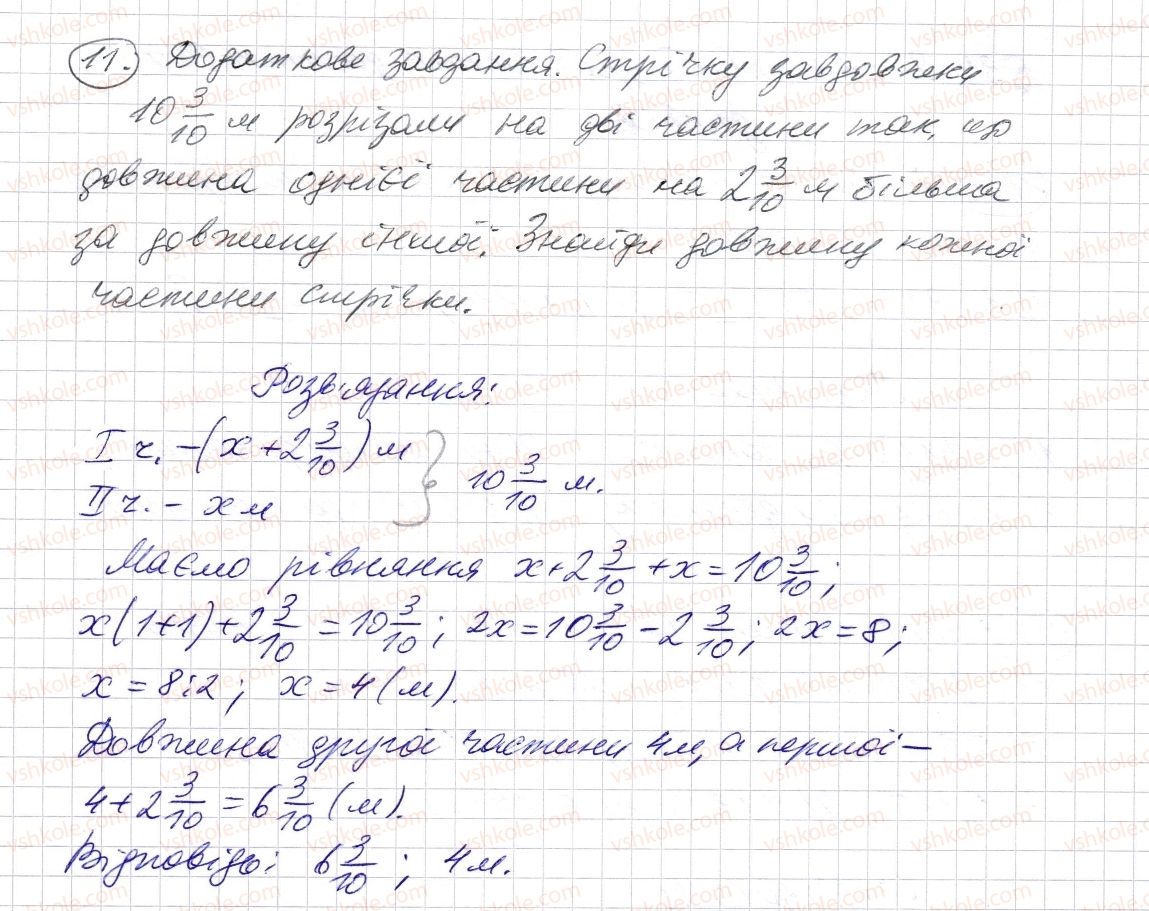 11. Додаткове завдання. Стрічку завдовжки
10 3/10 м розрізали на дві частини так, що
довжина однієї частини на 2 3/10 м більша
за довжину іншої. Знайди довжину кожної
частини стрічки.
Розв'язання:
I ч. – (x + 2 3/10) м
II ч. – x м } 10 3/10 м.
Маємо рівняння x + 2 3/10 + x = 10 3/10;
x(1+1) + 2 3/10 = 10 3/10; 2x = 10 3/10 – 2 3/10; 2x = 8;
x = 8:2; x = 4 (м).
Довжина другої частини 4м, а першої –
4 + 2 3/10 = 6 3/10 (м).
Відповідь: 6 3/10; 4м.
vshkole.com